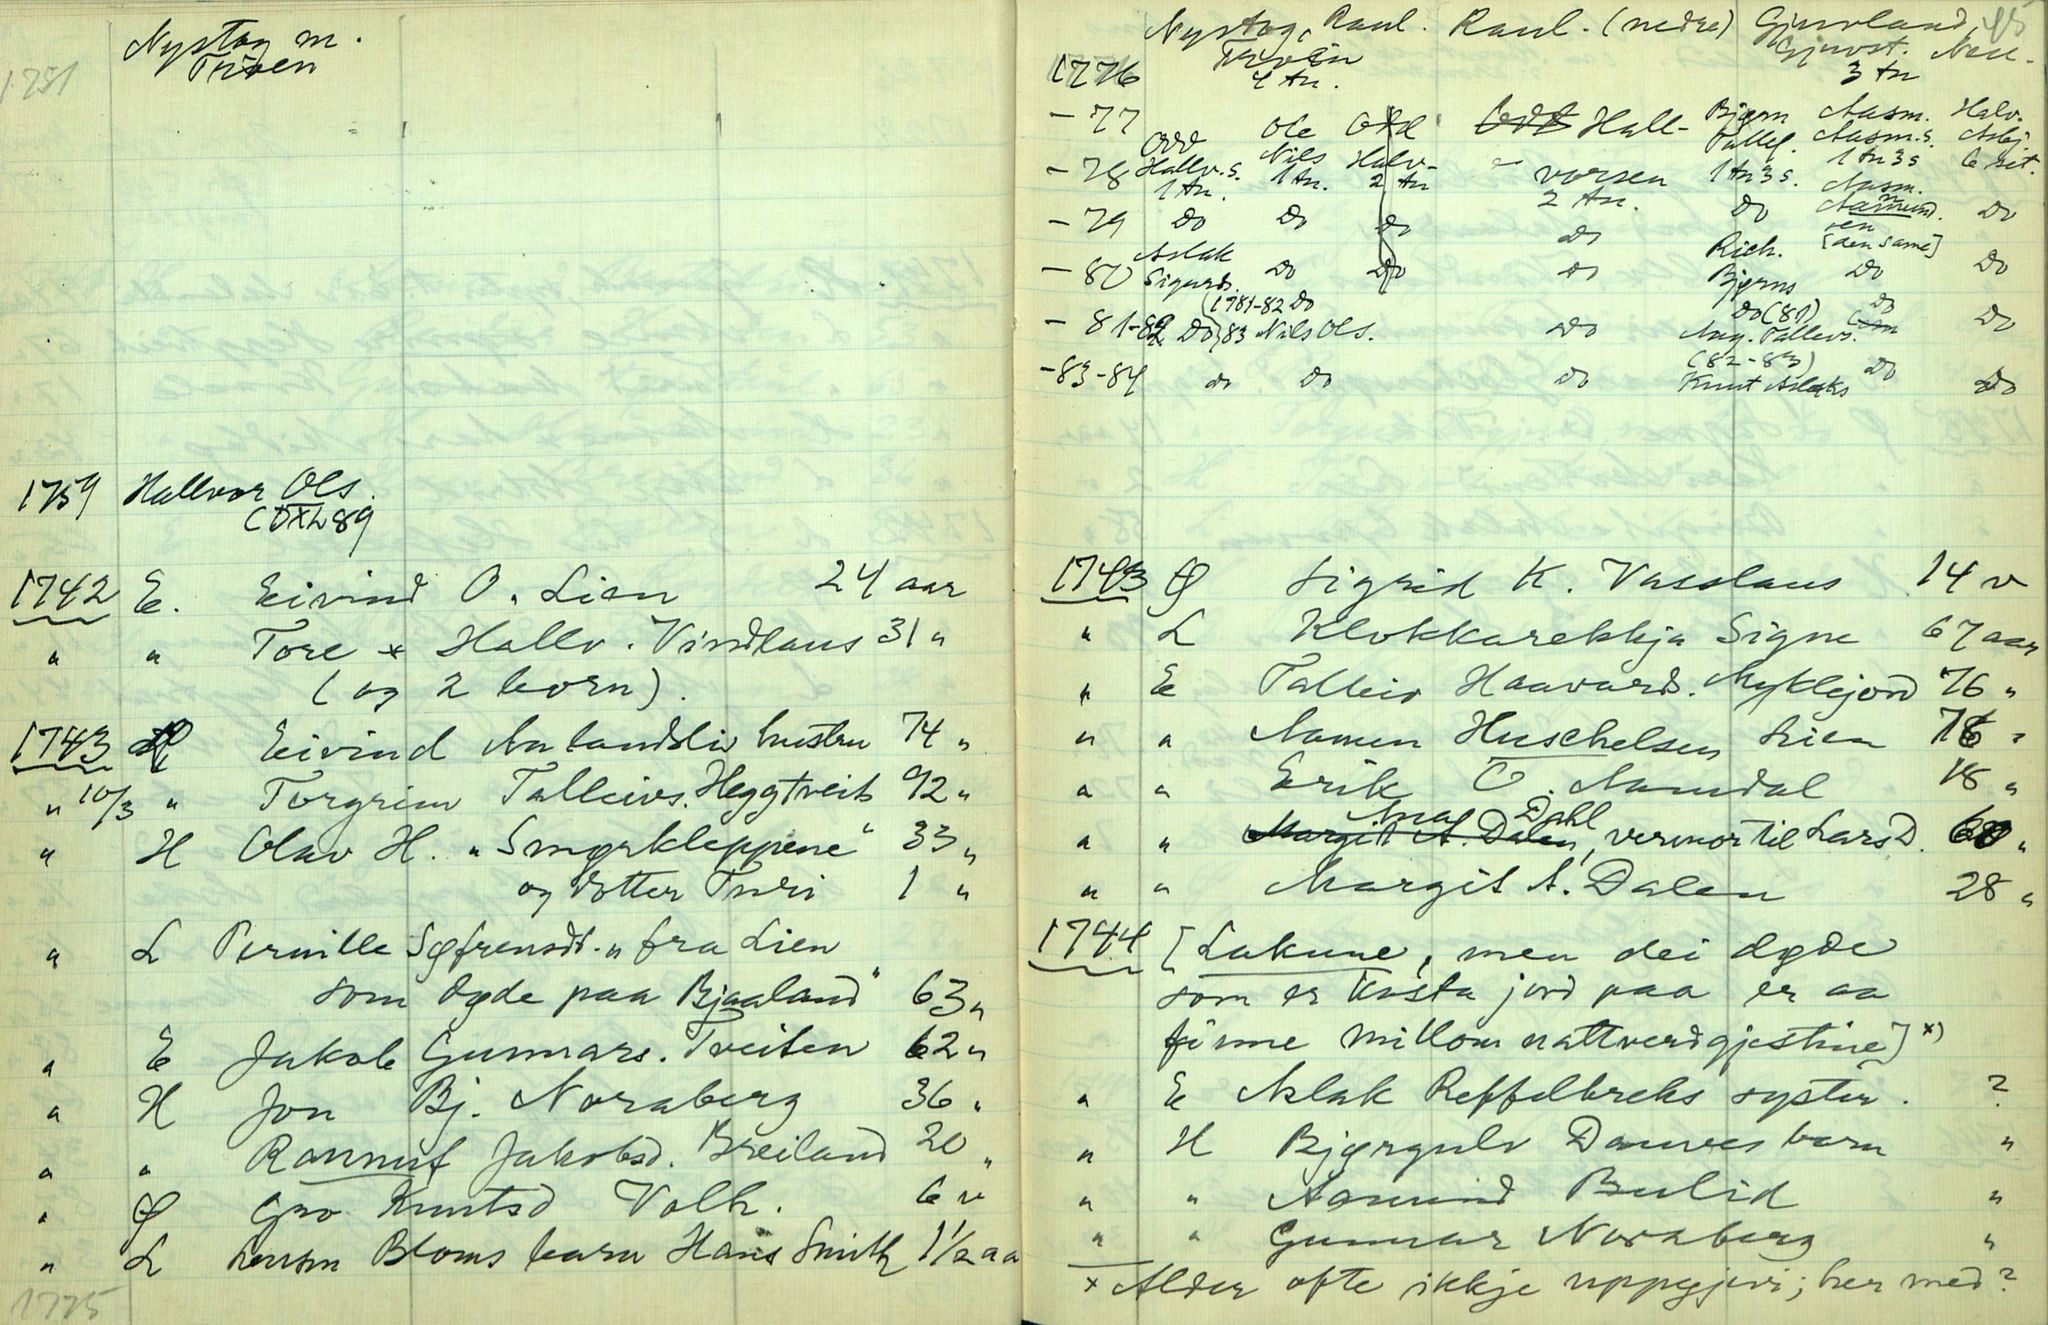 Nystog m.
Triven
1751
1759 Hallvor Ols.
1742 E. Eivind O. Lien 24 aar
" " Tore × Hallv. Vindlaus 31 "
(og 2 born).
1743 Eivind Aalandsli hustru 74 "
" 10/3 " Torgrim Talleivs. Heggtveit 92 "
" H Olav H. "Smørkleppene" 33 "
og dotter Turi 1 "
" L Pernille Søfrensdt. " fra Lien
som døde paa Bjaaland" 63 "
" E Jakob Gunnars. Tveiten 62 "
" H Jon Bj. Noraberg 36 "
" " Rannuf Jakobsd. Breiland 20 "
" Ø Gro Knutsd Volh. 6 v
" L Lensm Bloms barn Hans Smith 1 1/2 aa
1775
Nystog, Raul. Raul. (nedre) Gjuvland 45
Trovin Gjuvst. Ned.
1776 4 tn. 3 tn
- 77 Odd Ole Odd Odd Hall- Bjørn Aasm. Halv.
Tallef. Aasm.s. Asbj.
- 78 Hallv.s. Nils Halv- vorsen 1 tn 3 s. 1 tn 3 s 6 set.
1 tn. 1 tn. 2 tn 2 tn. Aasm.
- 79 Do Do Do Do Do Aamund. Do
Aslak Rich. [den same]
- 80 Sigurds. Do Do Do Bjørns Do Do
(1781-82 Do Do (81) Do
- 81-82 Do 83 Nils Ols. Do Aag. Tallevs. Do
(82-83)
- 83-84 do Do Do Knut Aslaks Do Do
1743 Ø Sigrid K. Vasslaus 14 v
" L Klokkarekkja Signe 67 aar
" E Talleiv Haavards. Myklejord 76 "
" " Aamun Huschelsen Lien 76 "
" " Erik O. Aamdal 18 "
Anna Dahl
" " Margit A. Dalen, vermor til Lars D. 60 "
" " Margit A. Dalen 28 "
1744 [Lakune, men dei døde
som er kasta jord paa er aa
finne millom nattverdgjestine] ×)
" E Aslak Reffelbreks syster. ?
" H Bjørgulv Daurves barn "
" " Aamund Bulid "
" " Gunnar Noraberg "
× Alder ofte ikkje uppgjevi; her med ?